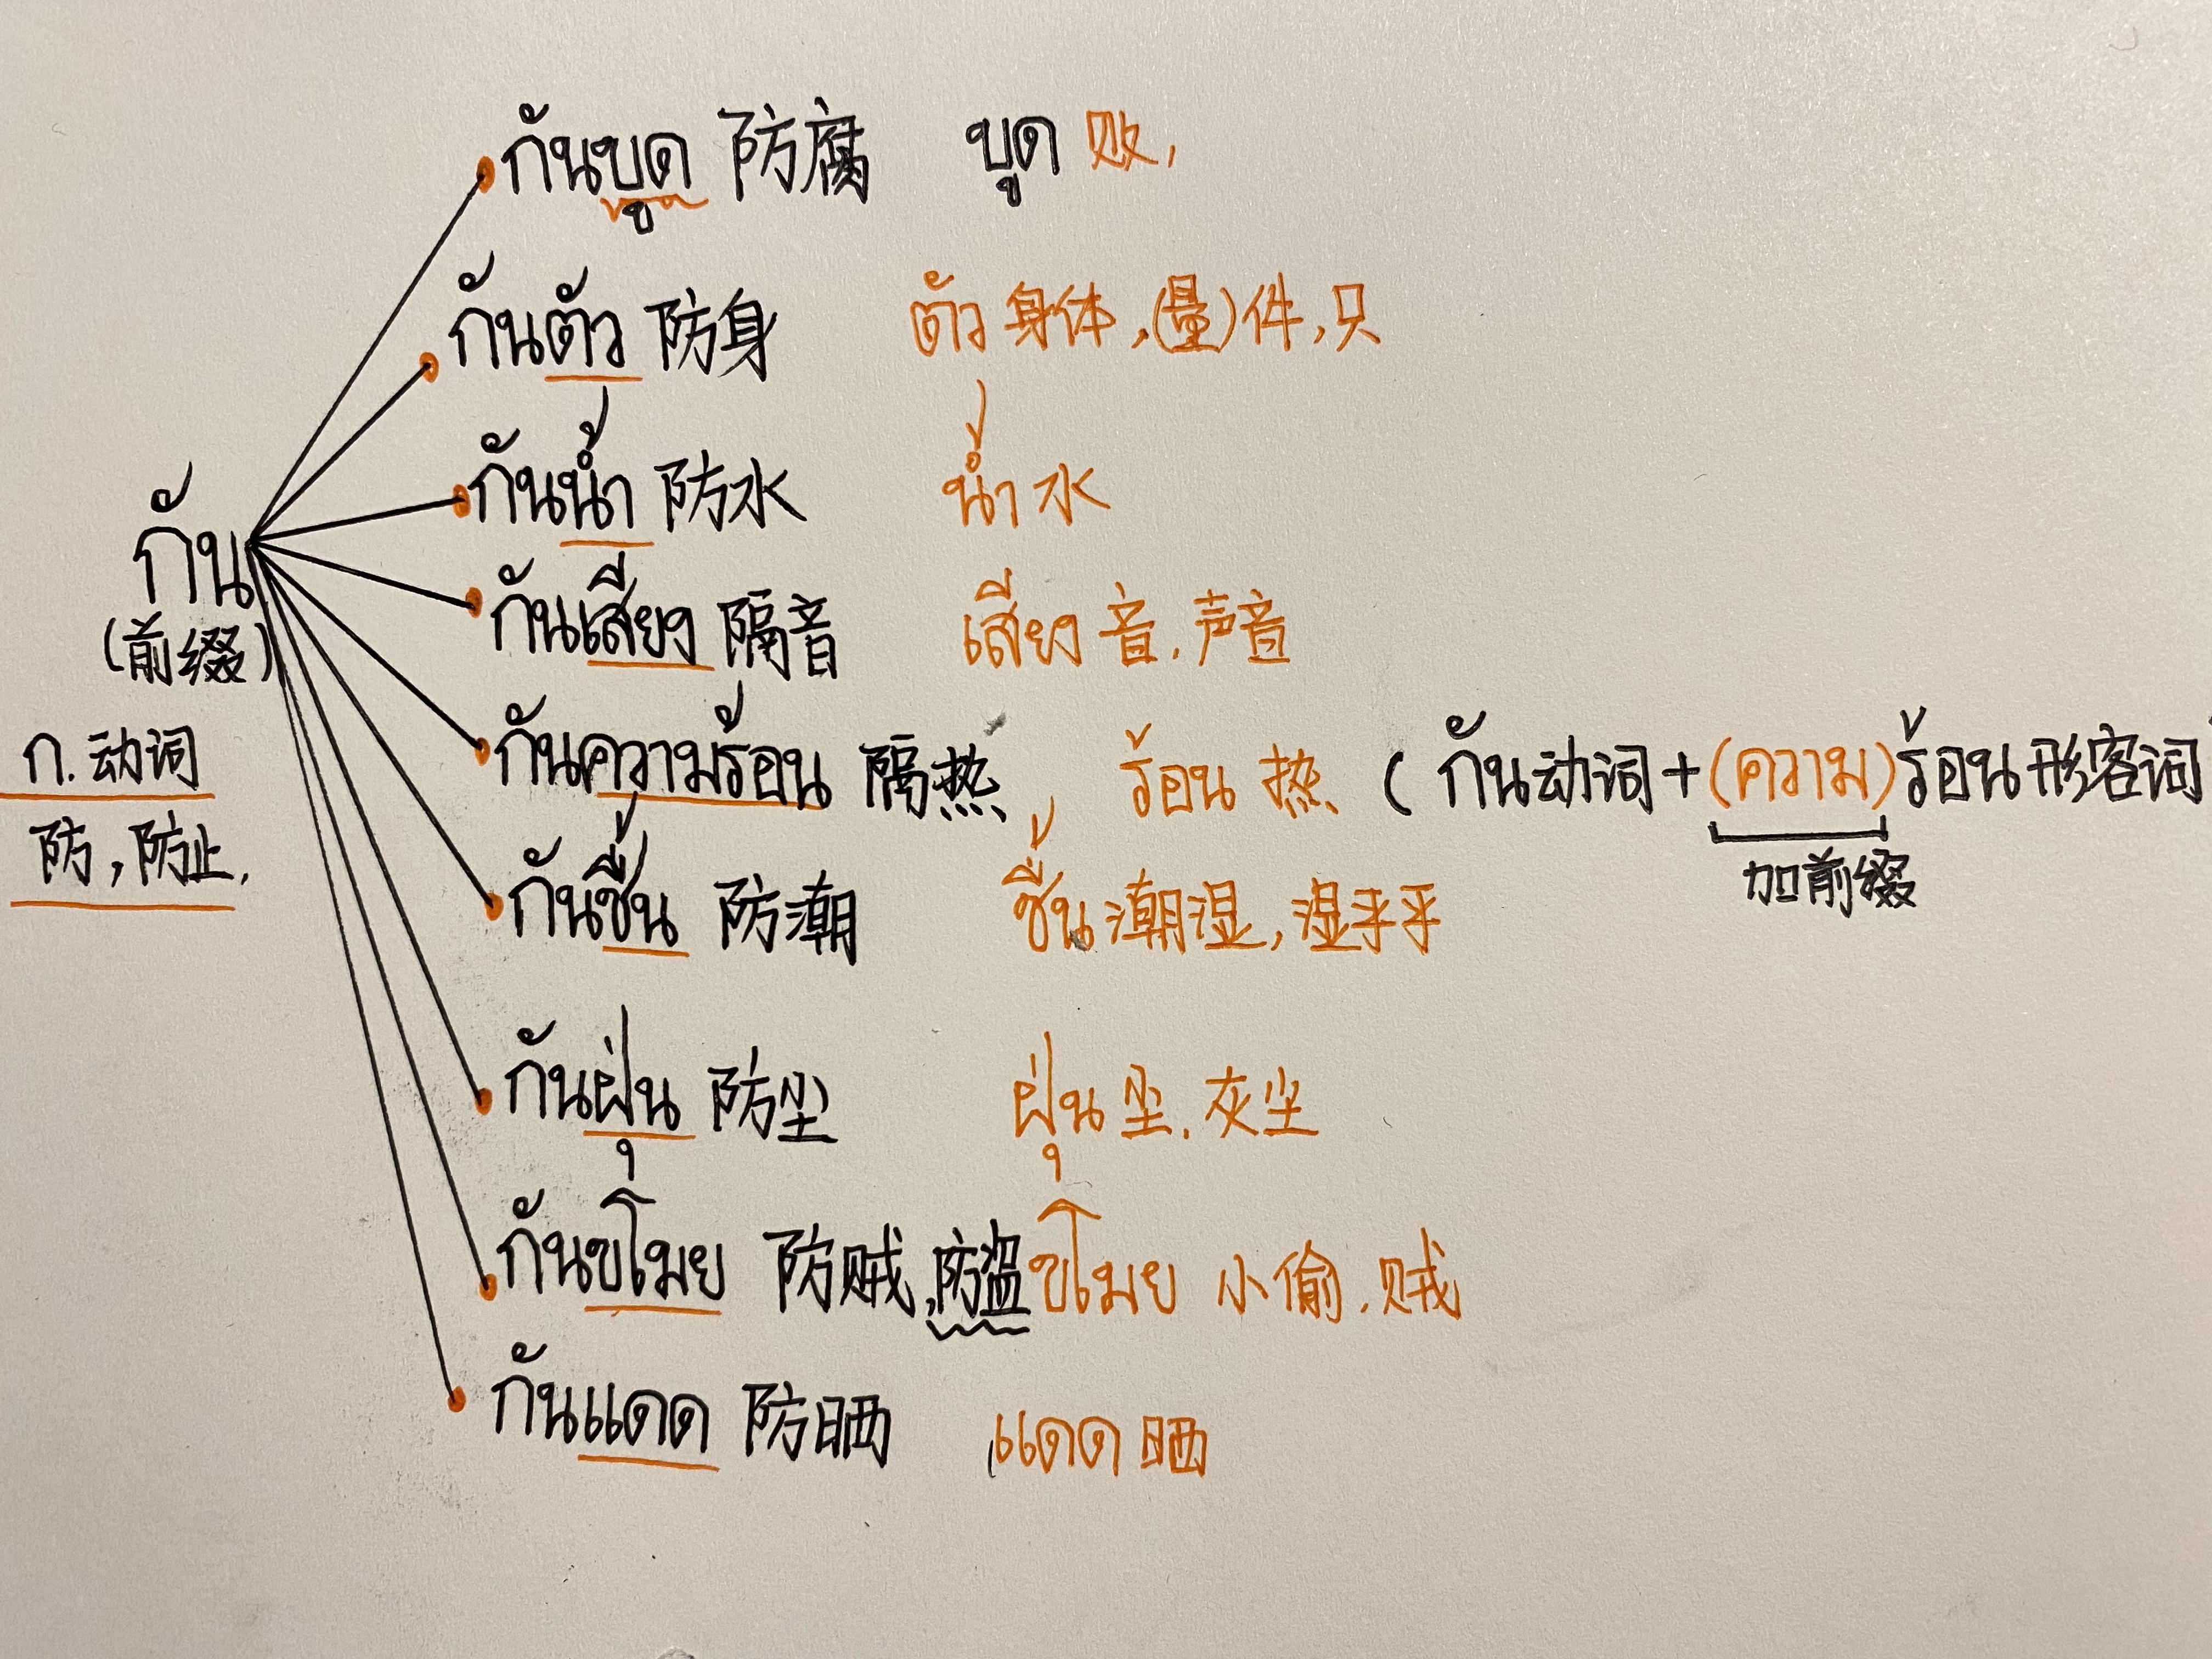 กันบูด 防腐 บูด 败,
กันตัว 防身 ตัว 身体,(量)件,只
กันน้ำ 防水 น้ำ 水
กัน
(前缀)
ก.动词
防,防止,
กันเสียง 隔音 เสียง 音.声音
กันความร้อน 隔热, ร้อน 热 (กัน动词+(ความ)ร้อน形容词
加前缀
กันชื้น 防潮 ชื้น 潮湿,湿乎乎
กันฝุ่น 防尘 ฝุ่น 尘.灰尘
กันขโมย 防贼.防盗 ขโมย 小偷.贼
กันแดด 防晒 แดด 晒